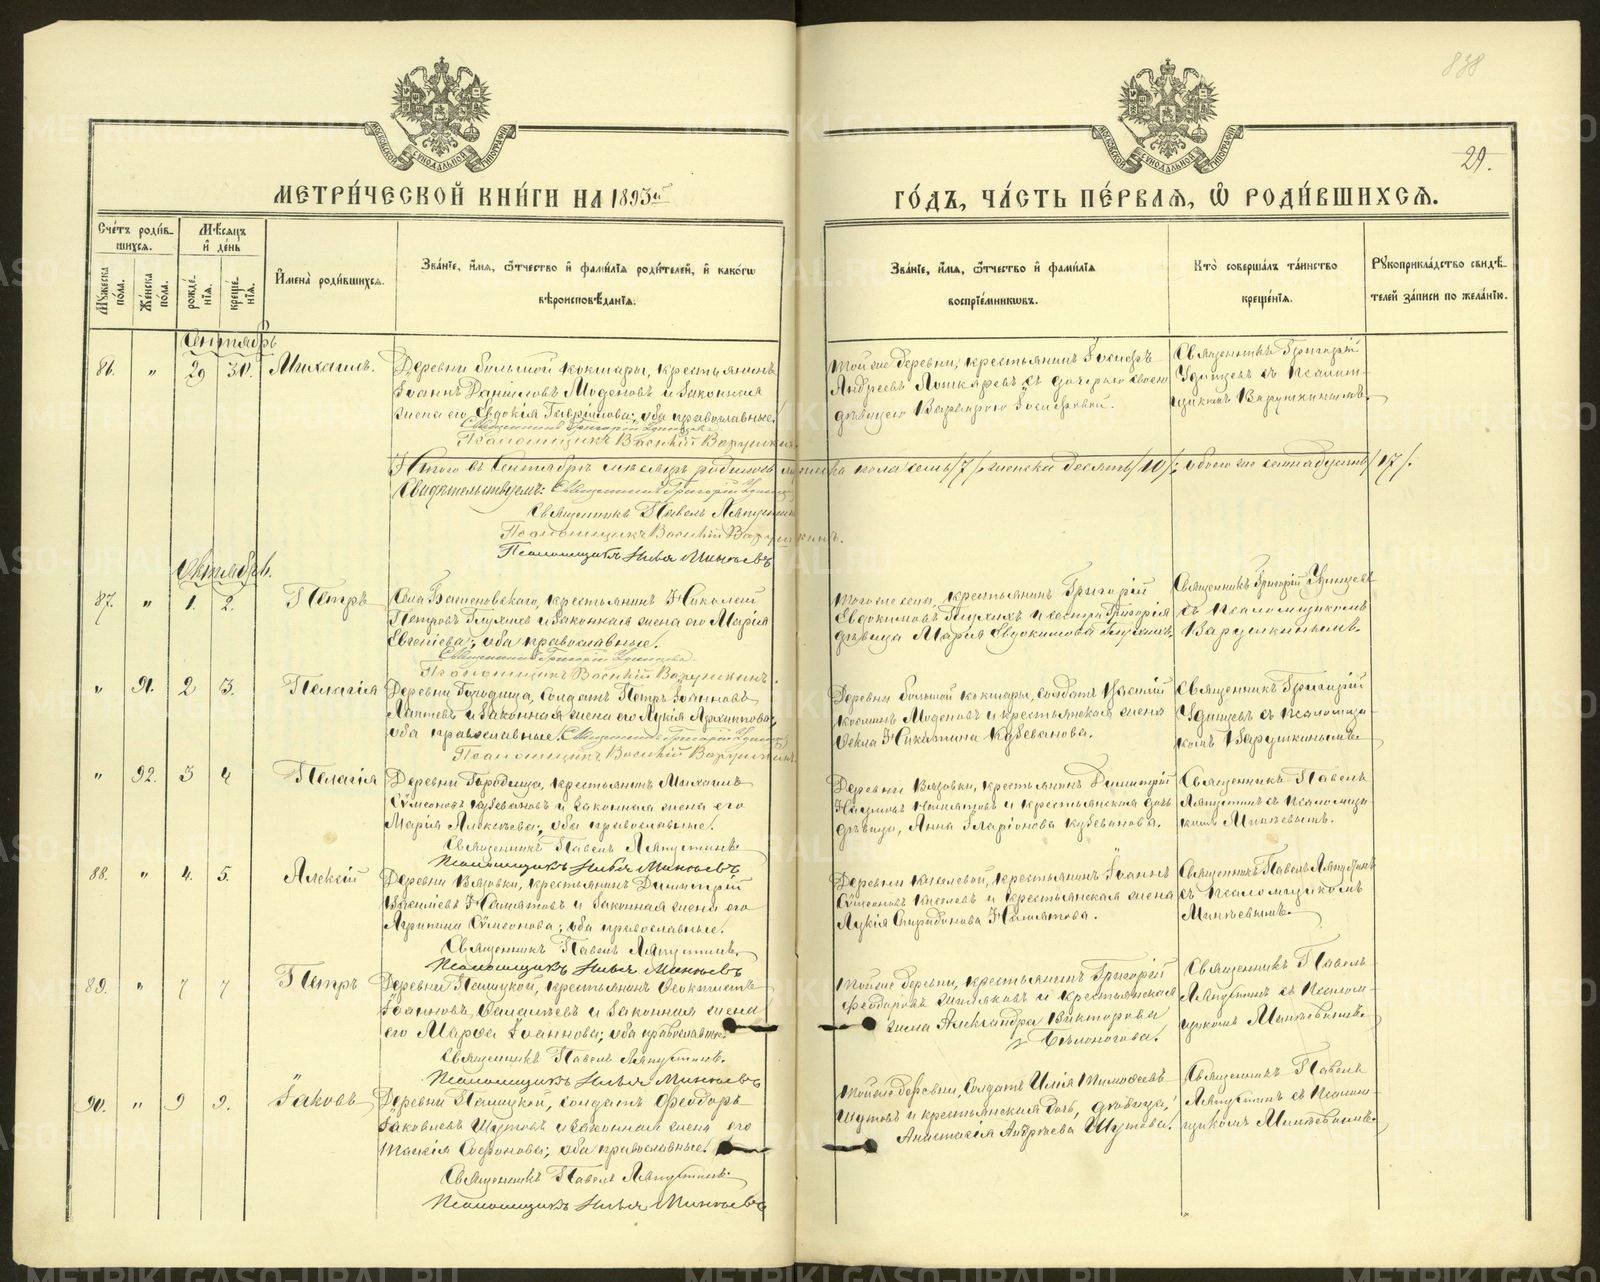 838
29.
МОСКОВСКОЙ СѴНОДАЛЬНОЙ ТИПОГРАФІИ
МОСКОВСКОЙ СѴНОДАЛЬНОЙ ТИПОГРАФІИ
МЕТРИ́ЧЕСКОЙ КНИ́ГИ НА 1893й
ГО́ДЪ, ЧА́СТЬ ПЕ́РВАЯ, Ѡ РОДИ́ВШИХСЯ.
Сче́тъ роди́в-
шихся.
Мѣсяцъ
и де́нь
Му́жеска по́ла.
Же́нска по́ла.
рожде́-
нія.
креще́-
нія.
Имена̀ роди́вшихся.
Зва́ніе, и́мя, ѻ́тчество и фами́лія роди́телей, и како́гѡ
вѣроисповѣ́данія.
Зва́ніе, и́мя, ѻ́тчество и фами́лія
воспріе́мниковъ.
Кто̀ соверша́лъ та́инство
креще́нія.
Рꙋкоприкла́дство свидѣ́-
телей за́писи по жела́нію.
Сентябрь
86. „ 29 30. Михаилъ.
Деревни большой кокшары, крестьянинъ
Іоаннъ Даниловъ Моденовъ и законная
жена его Евдокія Гаврілова; оба православные.
Священникъ Григорій Удинцевъ
Псаломщикъ Василій Варушкинъ.
Той же деревни, крестьянинъ Іосифъ
Андреевъ Лошкаревъ съ дочерью своею
дѣвицею Варварою Іосифовой.
Священникъ Григорій
Удинцевъ съ псалом-
щикомъ Варушкинымъ.
Итого въ Сентябрѣ мѣсяцѣ родилось мужеска пола семь /7/, женска десять /10/; обоего же семнадцать /17/.
Свидѣтельствуемъ: Священникъ Григорій Удинцевъ
Священникъ Павелъ Ляпустинъ
Псаломщикъ Василій Варушкинъ.
Псаломщикъ Илья Минѣевъ
Октябрь.
87. „ 1. 2. Петръ
Села Башеновскаго, крестьянинъ Николай
Петровъ Глухихъ и законная жена его Марія
Евгеніева; оба православные.
Священникъ Григорій Удинцевъ.
Псаломщикъ Василій Варушкинъ.
Того же села, крестьянинъ Григорій
Евдокимовъ Глухихъ и сестра Григорія
дѣвица Марія Евдокимова Глухихъ.
Священникъ Григорій Удинцевъ
съ псаломщикомъ
Варушкинымъ.
„ 91. 2 3. Пелагія
Деревни Городища, солдатъ Петръ Іоанновъ
Лаптевъ и законная жена его Лукія Архиппова;
оба православные. Священникъ Григорій Удинцевъ
Псаломщикъ Василій Варушкинъ.
Деревни большой кокшары, солдатъ
Моденовъ и крестьянская жена
Ѳекла Никитина Кубеванова.
Священникъ Григорій
Удинцевъ съ псаломщи-
комъ Варушкинымъ.
„ 92. 3 4 Пелагія
Деревни Городища, крестьянинъ Михаилъ
Сѵмеоновъ Кубевановъ и законная жена его
Марія Алексѣева; оба православные.
Священникъ Павелъ Ляпустинъ.
Псаломщикъ Илья Минѣевъ
Деревни Вязовки, крестьянинъ Димитрій
Наумовъ и крестьянская дочь
дѣвица, Анна Иларіонова Кубеванова.
Священникъ Павелъ
Ляпустинъ съ псаломщи-
комъ Минѣевымъ.
88. „ 4. 5. Алексій
Деревни Вязовки, крестьянинъ Димитрій
Василіевъ и законная жена его
Агрипина Сѵмеонова; оба православные.
Священникъ Павелъ Ляпустинъ.
Псаломщикъ Илья Минѣевъ
Деревни Киселевой, крестьянинъ Іоаннъ
Сѵмеоновъ Киселевъ и крестьянская жена
Лукія Спиридонова
Священникъ Павелъ Ляпустинъ
съ псаломщикомъ
Минѣевымъ.
89. „ 7 7 Петръ
Деревни Палицкой, крестьянинъ Ѳеоктистъ
Іоанновъ и законная жена
его Марѳа Іоаннова; оба православные.
Священникъ Павелъ Ляпустинъ.
Псаломщикъ Илья Минѣевъ
Той же деревни, крестьянинъ Григорій
Ѳеодоровъ и крестьянская
жена Александра Викторова
Бѣлоногова.
Священникъ Павелъ
Ляпустинъ съ псалом-
щикомъ Минѣевымъ.
90. „ 9 9. Іаковъ
Деревни Палицкой, солдатъ Ѳеодоръ
Іаковлевъ Шутовъ и законная жена его
Таисія Софонова; оба православные.
Священникъ Павелъ Ляпустинъ.
Псаломщикъ Илья Минѣевъ
Той же деревни, солдатъ Илія Тимоѳеевъ
Шутовъ и крестьянская дочь, дѣвица,
Анастасія Андреева Шутова.
Священникъ Павелъ
Ляпустинъ съ псалом-
щикомъ Минѣевымъ.